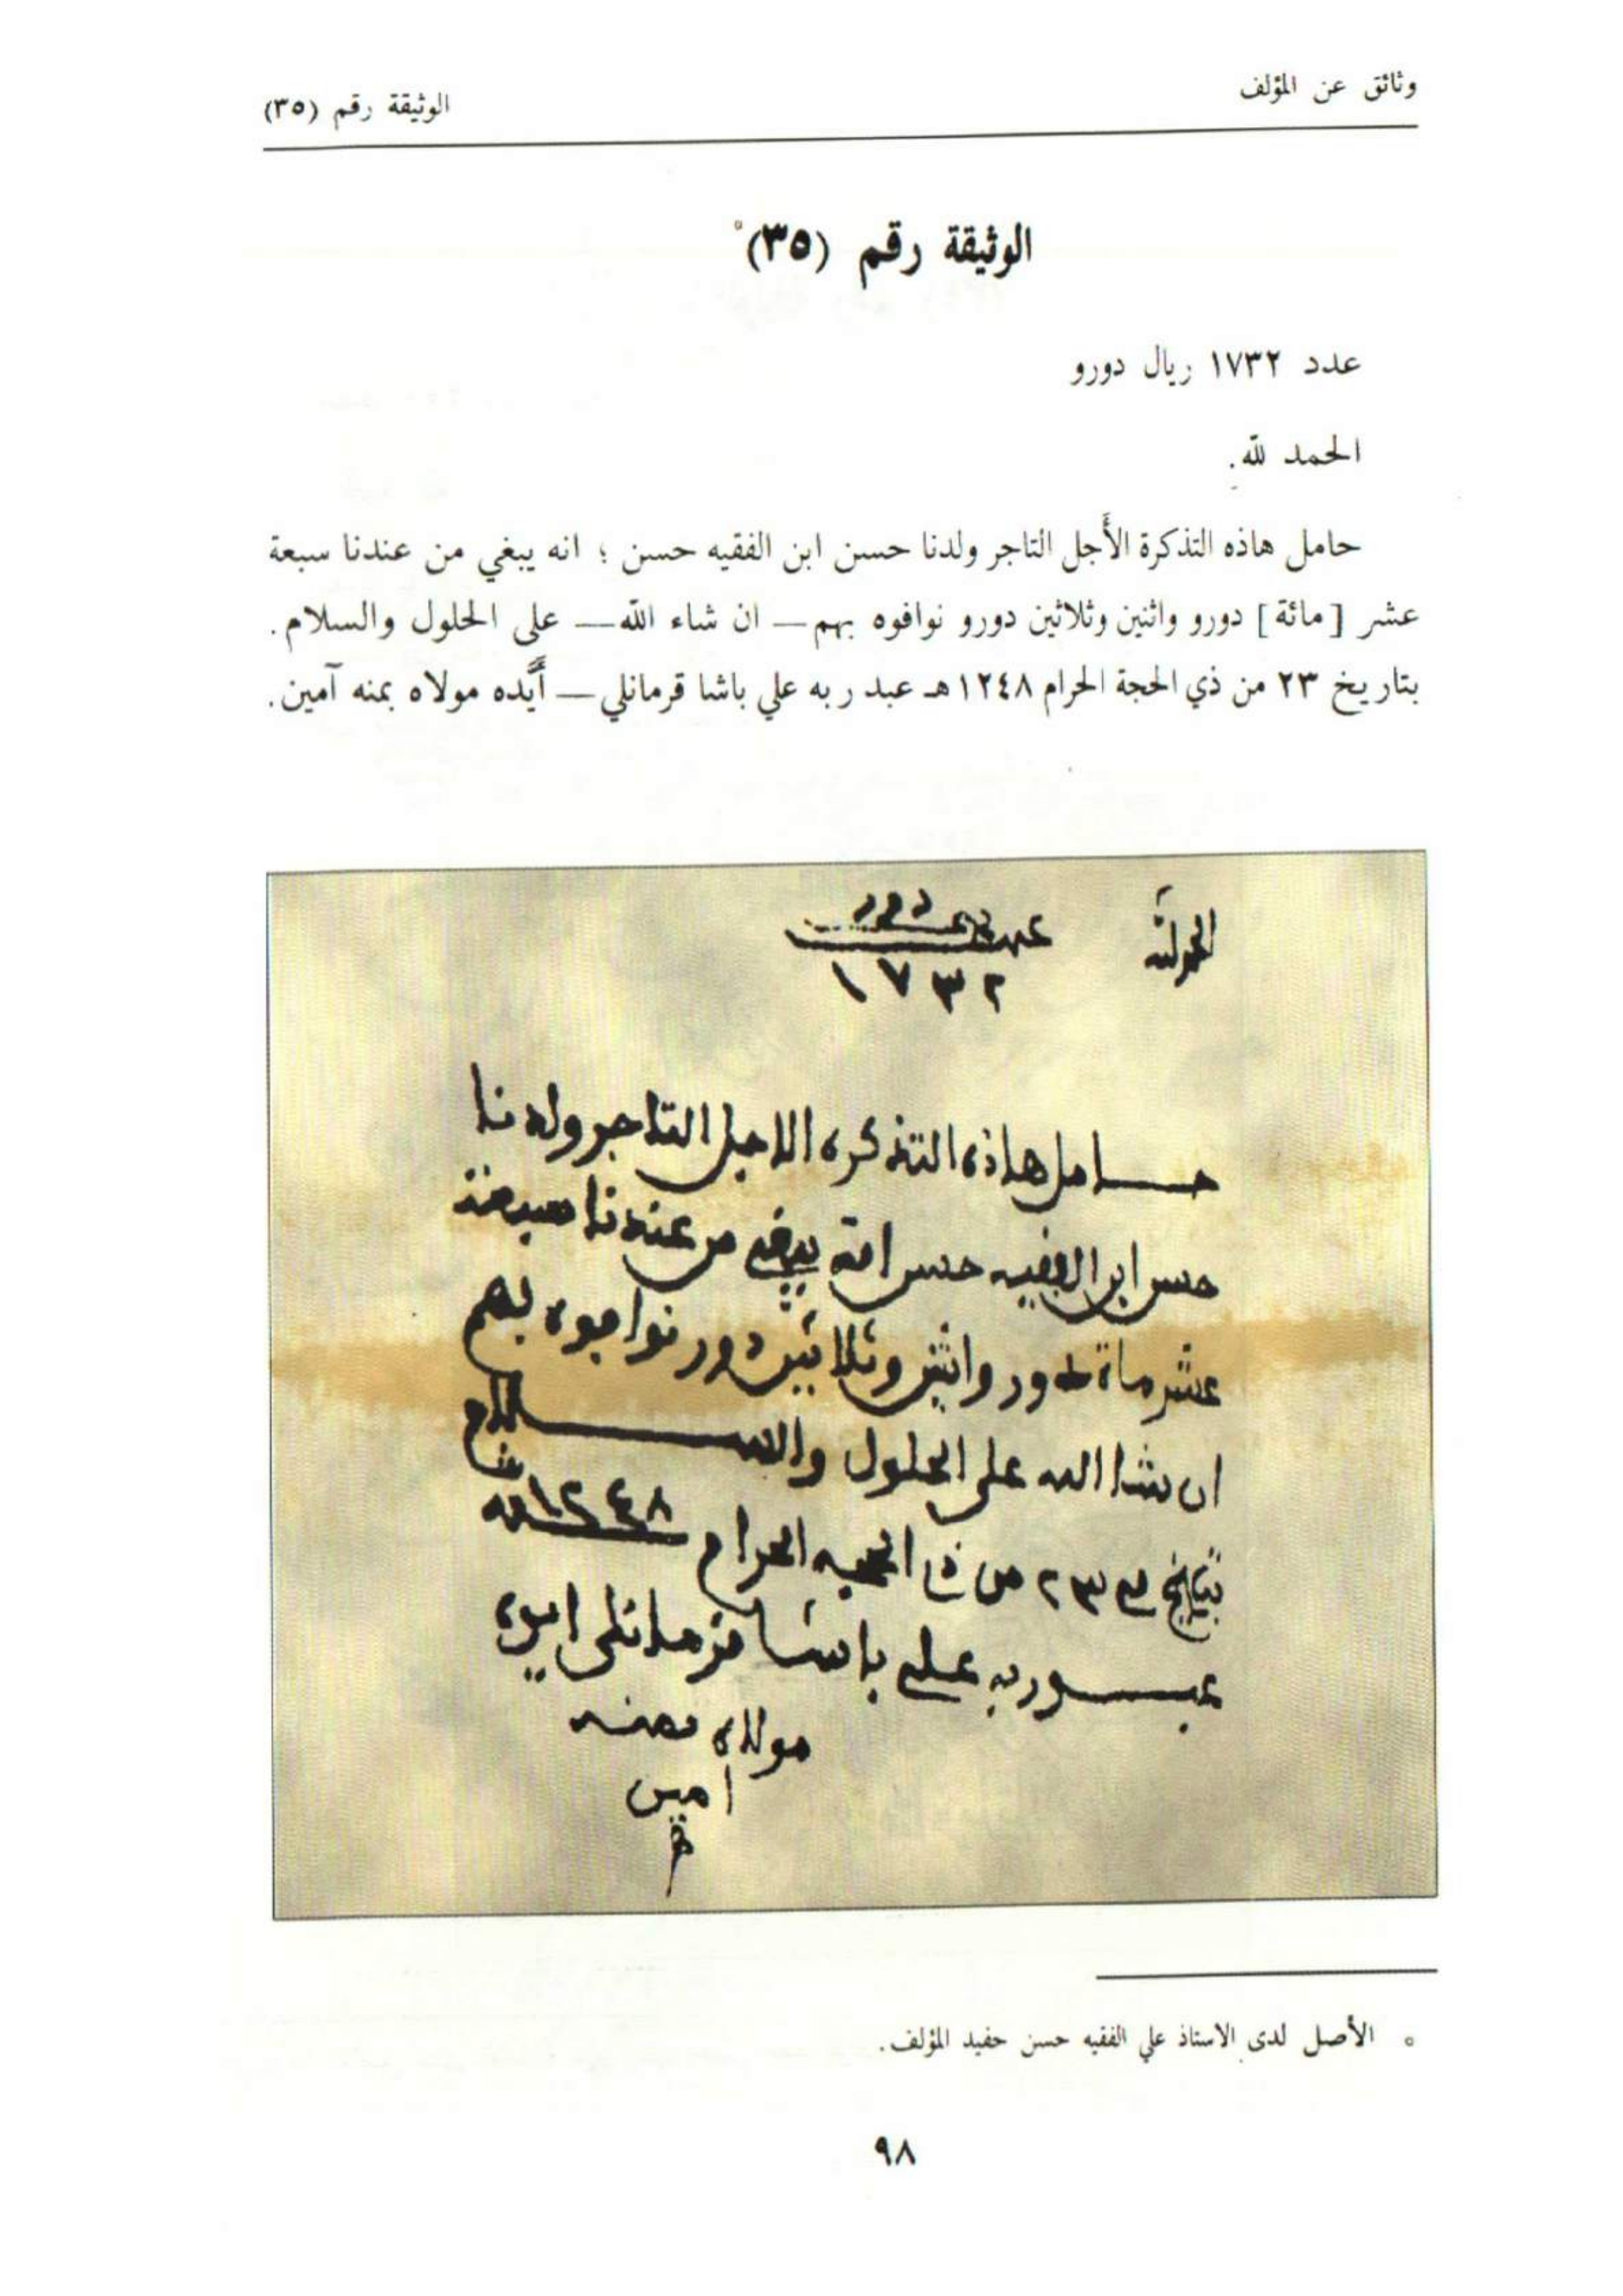 وثائق عن المؤلف
الوثيقة رقم (٣٥)
الوثيقة رقم (٣٥)°
عدد ١٧٣٢ ريال دورو
الحمد لله.
حامل هاذه التذكرة الأَجل التاجر ولدنا حسن ابن الفقيه حسن ؛ انه يبغي من عندنا سبعة
عشر [مائة] دورو واثنين وثلاثين دورو نوافوه بهم — ان شاء الله — على الحلول والسلام.
بتاريخ ٢٣ من ذي الحجة الحرام ١٢٤٨هـ عبد ربه علي باشا قرمانلي — أَيَّده مولاه بمنه آمين.
الحمد لله
دورو
١٧٣٢
حامل هاذه التذكره الاجل التاجر ولدنا
حسن ابن الفقيه حسن انه يبغي من عندنا سبعة
عشر ماة دورو واثنين وثلاثين دورو نوافوه بهم
ان شا الله على الحلول والسلام
بتاريخ ٢٣ من ذا الحجه الحرام ١٢٤٨
عبد ربه علي باشا قرمانلي ايده
مولاه بمنه
امين
° الأصل لدى الاستاذ علي الفقيه حسن حفيد المؤلف.
٩٨